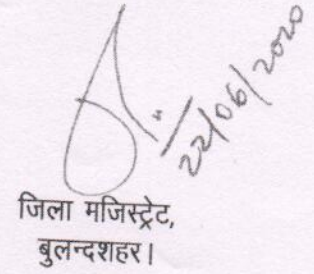 22/06/2020
जिला मजिस्ट्रेट,
बुलन्दशहर।